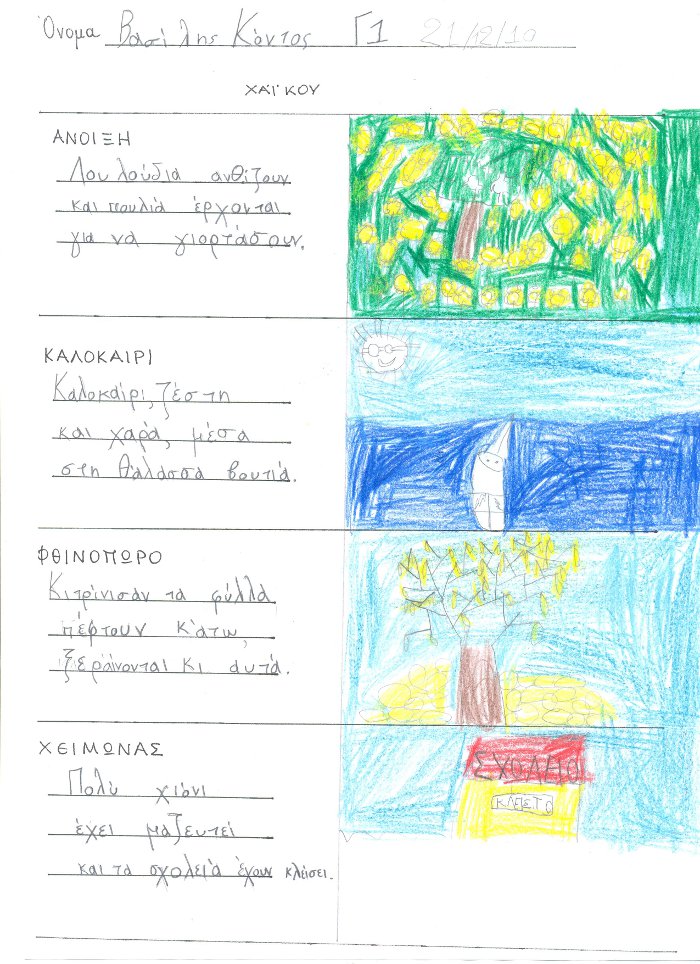 Όνομα Βασίλης Κόντος Γ1 21/12/10
ΧΑΪΚΟΥ
ΑΝΟΙΞΗ
Λουλούδια ανθίζουν
και πουλιά έρχονται
για να γιορτάσουν.
ΚΑΛΟΚΑΙΡΙ
Καλοκαίρι, ζέστη
και χαρά, μέσα
στη θάλασσα βουτιά.
ΦΘΙΝΟΠΩΡΟ
Κιτρίνισαν τα φύλλα
πέφτουν κάτω,
ξεραίνονται κι αυτά.
ΧΕΙΜΩΝΑΣ
Πολύ χιόνι
έχει μαζευτεί
και τα σχολειά έχουν κλείσει.
ΣΧΟΛΕΙΟ
ΚΛΕΙΣΤΟ